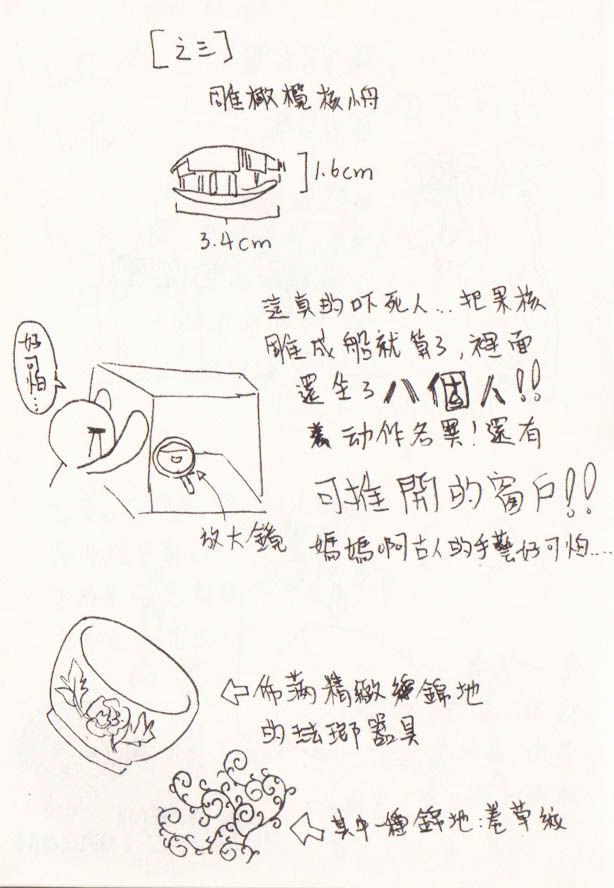 [之三]
雕橄欖核小舟
1.6cm
3.4cm
這真的吓死人...把果核
雕成船就算了,裡面
還坐了八個人!!
动作各異!還有
可推開的窗戶!!
媽媽啊古人的手藝好可怕....
好可怕...
放大鏡
佈滿精緻錦地
的珐瑯器具
其中一種錦地:卷草紋